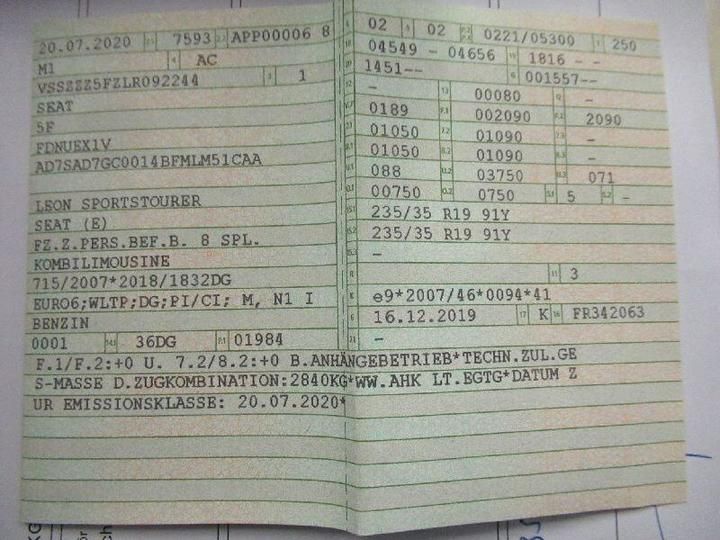 20.07.2020 7593 APP00006 8
M1 AC
VSSZZZ5FZLR092244 1
SEAT
5F
FDNUEX1V
AD7SAD7GC0014BFMLM51CAA
LEON SPORTSTOURER
SEAT (E)
FZ.Z.PERS.BEF.B. 8 SPL.
KOMBILIMOUSINE
715/2007*2018/1832DG
EURO6;WLTP;DG;PI/CI; M, N1 I
BENZIN
0001 36DG 01984
02 02 0221/05300 250
04549 - 04656 1816 - -
1451-- 001557--
- 00080 -
0189 002090 2090
01050 01090 -
01050 01090 -
088 03750 071
00750 0750 5 -
235/35 R19 91Y
235/35 R19 91Y
-
3
e9*2007/46*0094*41
16.12.2019 K FR342063
-
F.1/F.2:+0 U. 7.2/8.2:+0 B.ANHÄNGEBETRIEB*TECHN.ZUL.GE
S-MASSE D.ZUGKOMBINATION:2840KG*WW.AHK LT.EGTG*DATUM Z
UR EMISSIONSKLASSE: 20.07.2020*